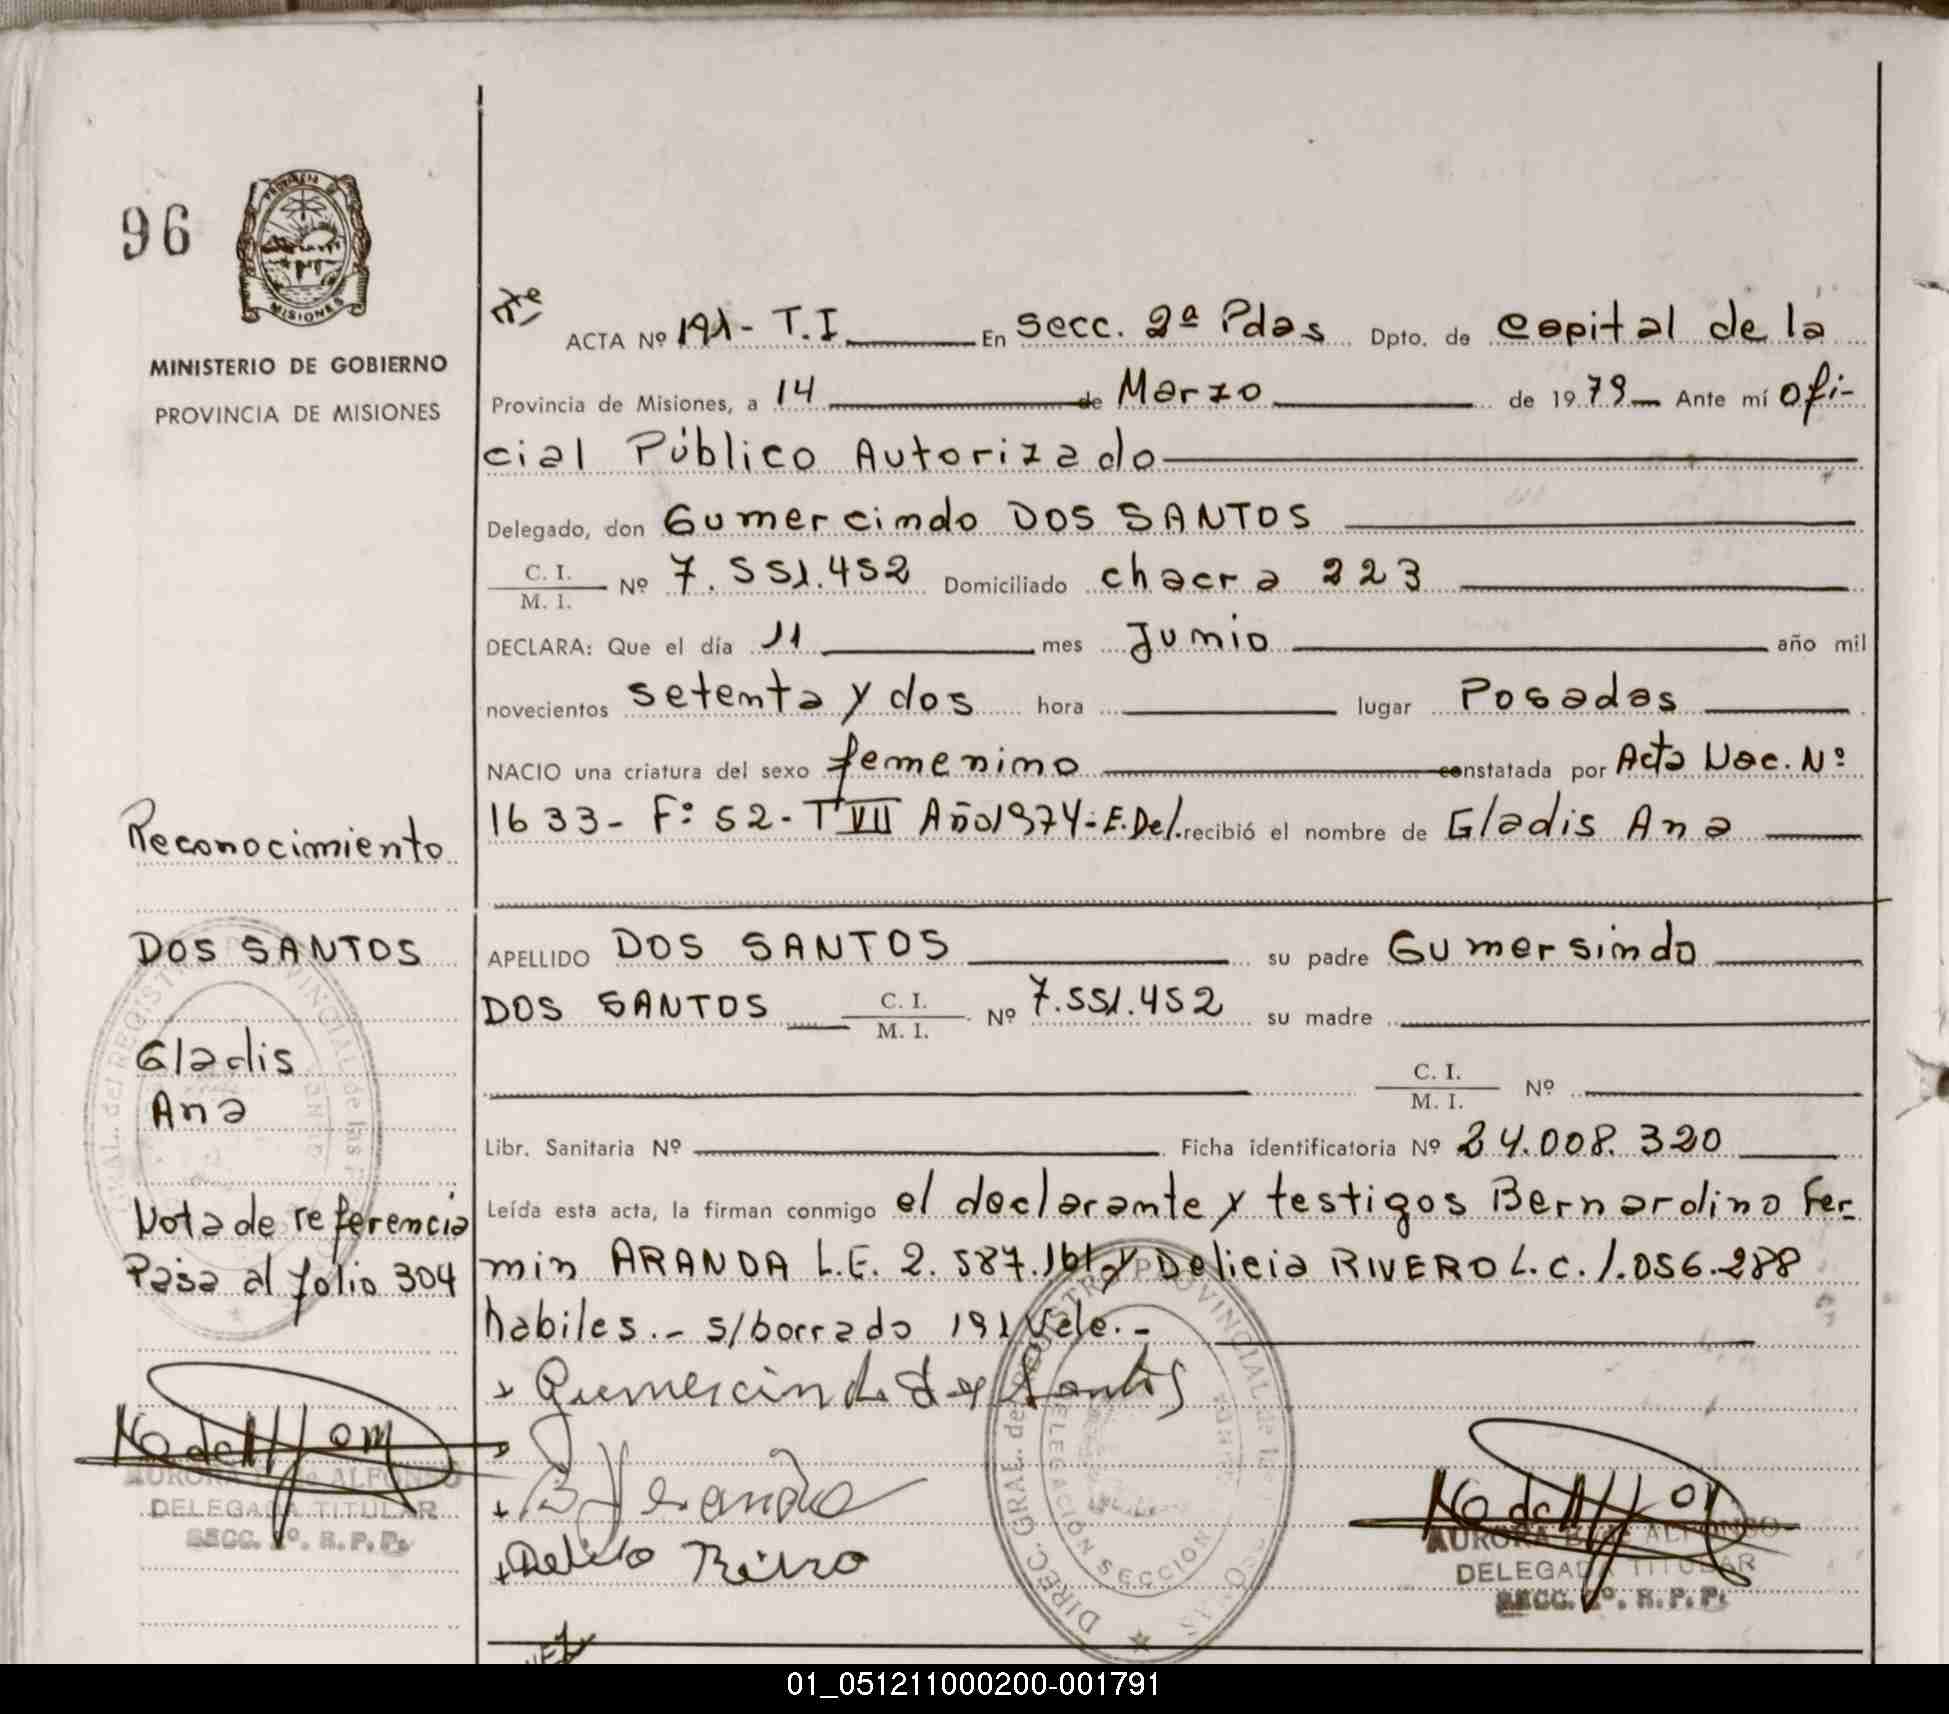 96
PROVINCIA DE
MISIONES
MINISTERIO DE GOBIERNO
PROVINCIA DE MISIONES
Reconocimiento
DOS SANTOS
Gladis
Ana
Nota de referencia
Pasa al folio 304
AURORA B. de ALFONSO
DELEGADA TITULAR
SECC. 2º. R. P. P.
ACTA Nº 191 - T. I En Secc. 2ª Pdas Dpto. de Capital de la
Provincia de Misiones, a 14 de Marzo de 1979 Ante mí Ofi-
cial Público Autorizado
Delegado, don Gumercindo DOS SANTOS
C. I.
M. I. Nº 7.551.452 Domiciliado chacra 223
DECLARA: Que el día 11 mes Junio año mil
novecientos setenta y dos hora lugar Posadas
NACIO una criatura del sexo femenino constatada por Acta Nac. Nº
1633 - Fº 52 - T VII Año 1974 - E. Del. recibió el nombre de Gladis Ana
APELLIDO DOS SANTOS su padre Gumersindo
DOS SANTOS C. I.
M. I. Nº 7.551.452 su madre
C. I.
M. I. Nº
Libr. Sanitaria Nº Ficha identificatoria Nº 24.008.320
Leída esta acta, la firman conmigo el declarante y testigos Bernardino Fer-
min ARANDA L.E. 2.587.161 y Delicia RIVERO L.C. 1.056.288
habiles. - s/borrado 191 Vale. -
Gumercindo dos Santos
DIREC. GRAL. del REGISTRO PROVINCIAL de las PERSONAS
DELEGACION SECCION
AURORA B. de ALFONSO
DELEGADA TITULAR
SECC. 2º. R. P. P.
01_051211000200-001791